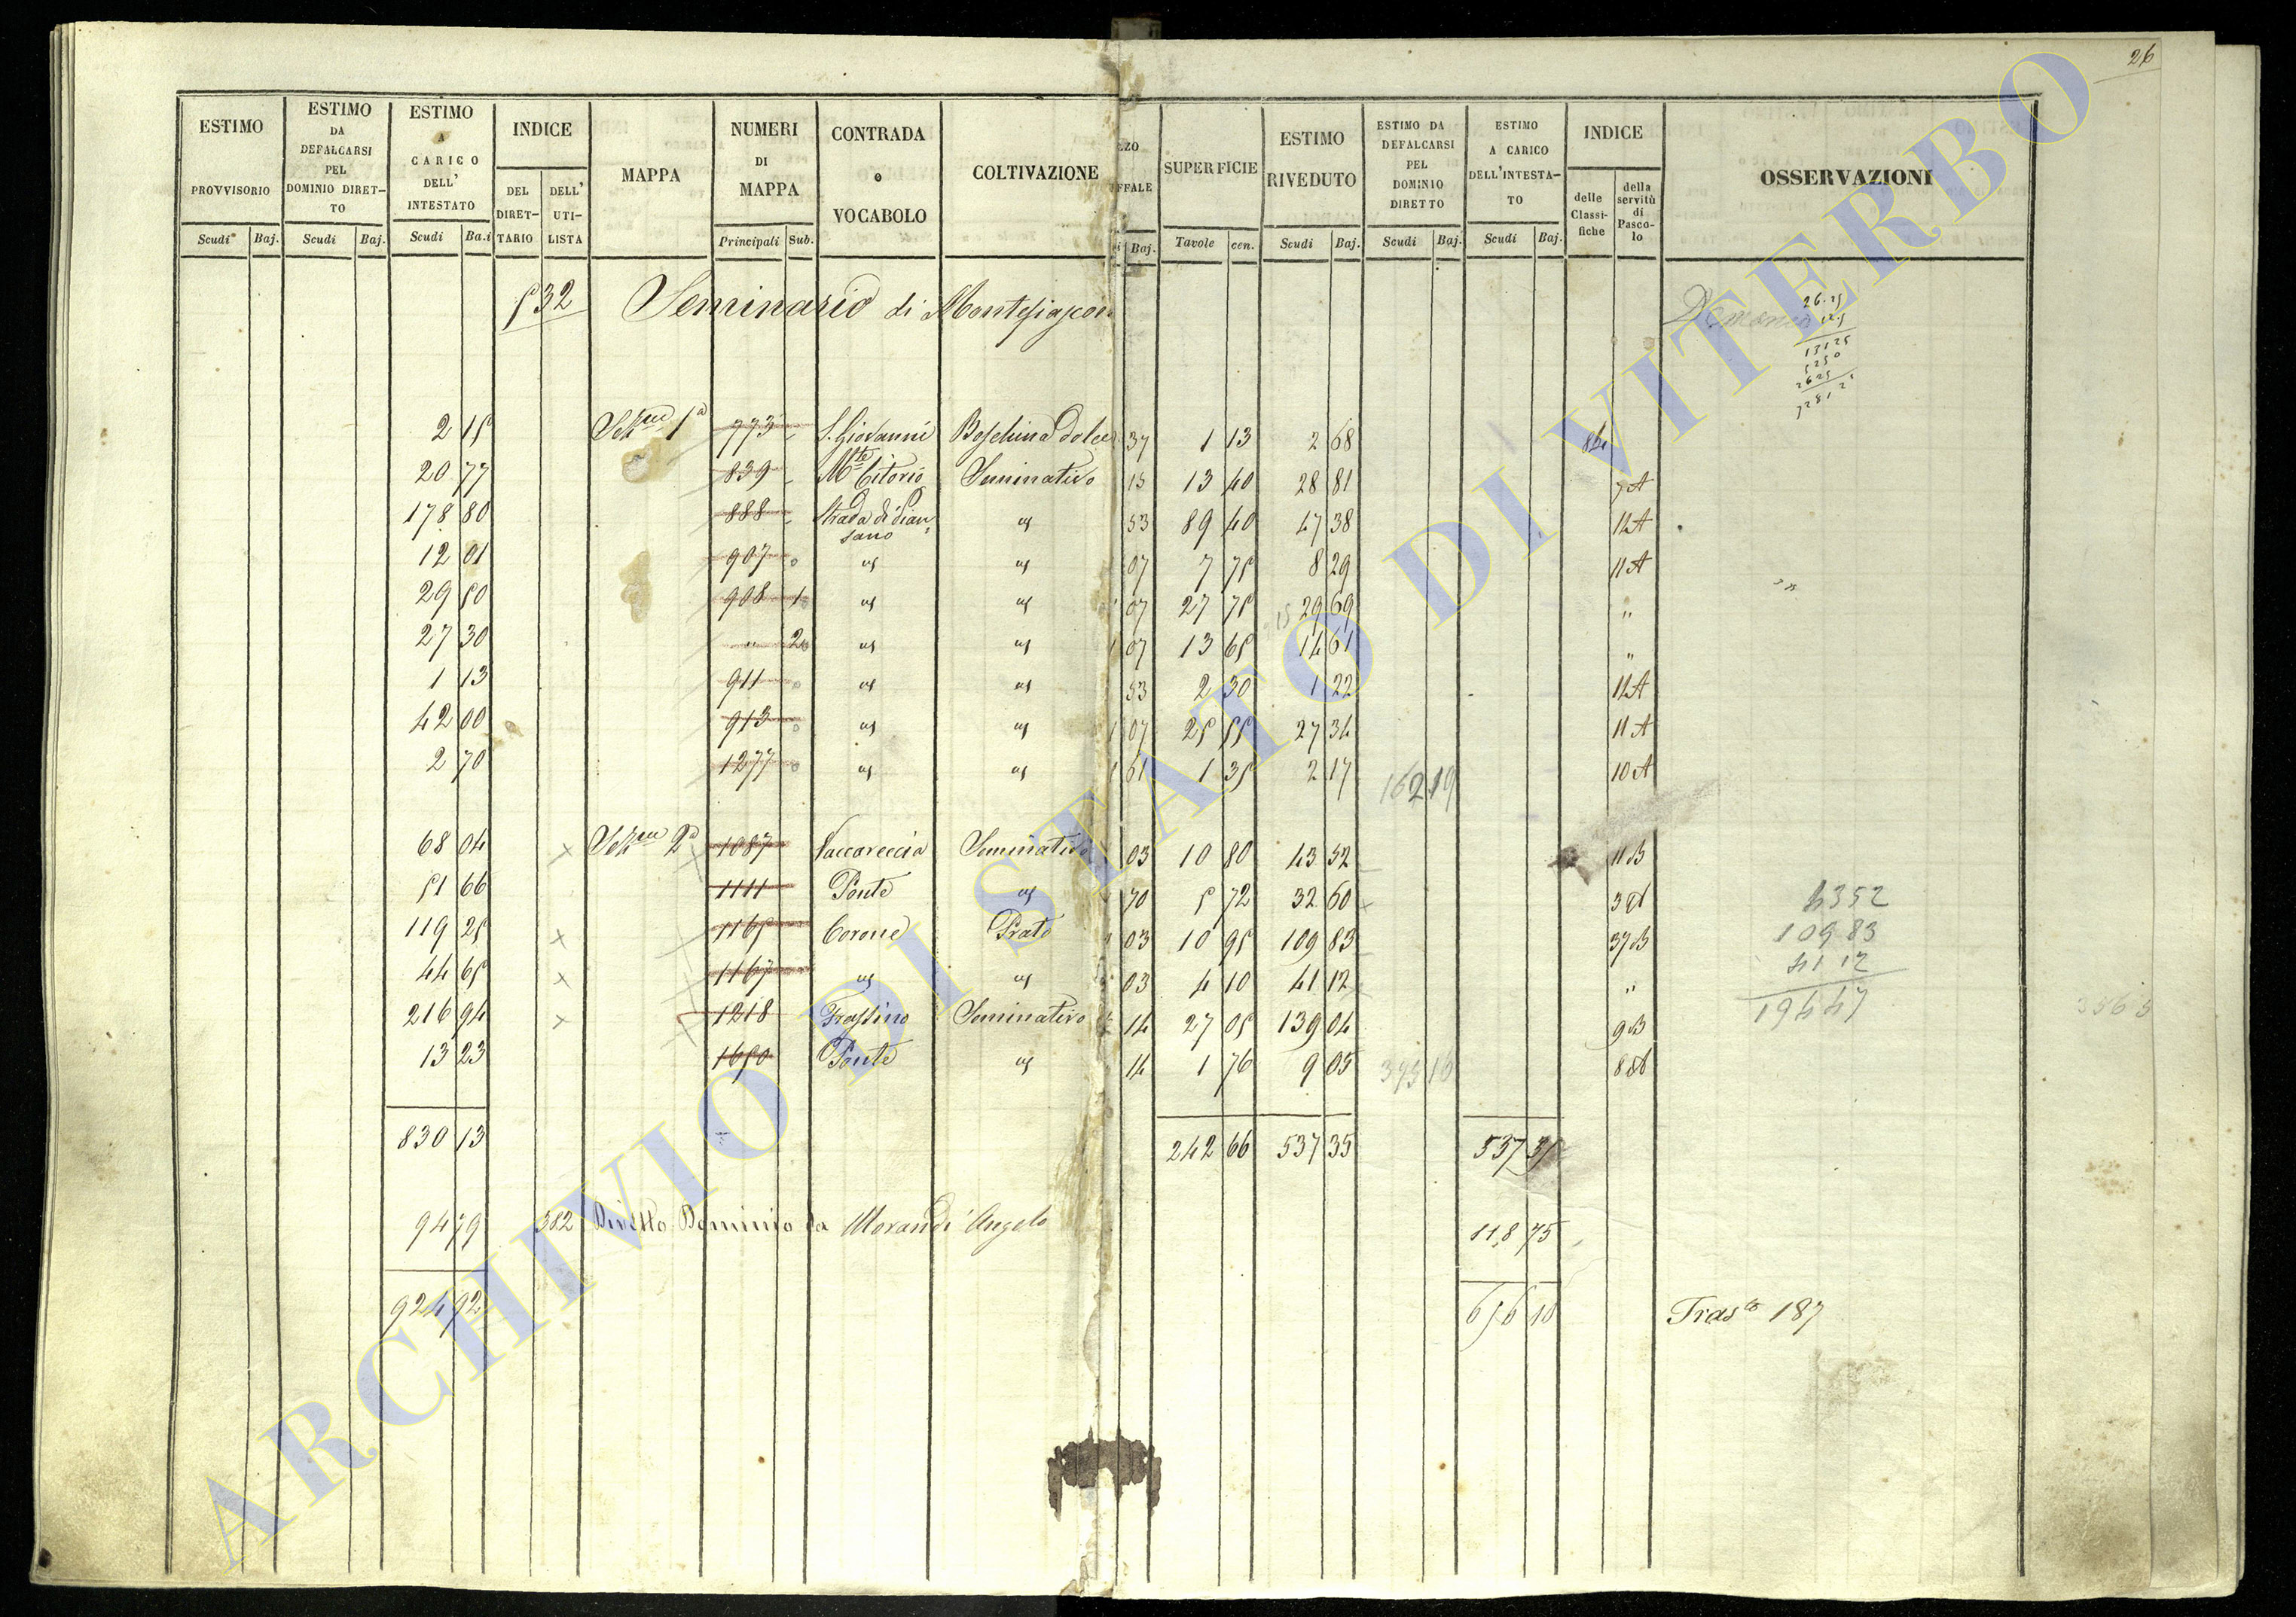 26
ESTIMO PROVVISORIO Scudi Baj.
ESTIMO DA DEFALCARSI PEL DOMINIO DIRET-TO Scudi Baj.
ESTIMO A CARICO DELL' INTESTATO Scudi Ba.i
INDICE DEL DIRET-TARIO DELL' UTI-LISTA
MAPPA
NUMERI DI MAPPA Principali Sub.
CONTRADA o VOCABOLO
COLTIVAZIONE
ZO FFALE Baj.
SUPERFICIE Tavole cen.
ESTIMO RIVEDUTO Scudi Baj.
ESTIMO DA DEFALCARSI PEL DOMINIO DIRETTO Scudi Baj.
ESTIMO A CARICO DELL'INTESTA-TO Scudi Baj.
INDICE delle Classi-fiche della servitù di Pasco-lo
OSSERVAZIONI
532 Seminario di Montefiascon
2 15 Sez.ne 1a 773 S. Giovanni Boschina dolce 37 1 13 2 68
20 77 839 M.te Citorio Seminativo 13 40 28 81 7A
178 80 888 Strada di Pian-sano " 53 89 40 47 38 12A
12 01 907 " " 07 7 75 8 29 11A
29 50 908 1 " " 07 27 75 29 69 "
27 30 " 2 " " 07 13 65 14 61 "
1 13 911 " " 53 2 30 1 22 12A
42 00 913 " " 07 25 55 27 34 11A
2 70 1277 " " 61 1 35 2 17 162 19 10A
68 04 Sez.ne 2a 1087 Vaccareccia Seminativo 03 10 80 43 52 11B
51 66 1111 Ponte " 70 5 72 32 60
119 25 1165 Corone Prato 03 10 95 109 83 37B
44 65 1167 " " 03 4 10 41 12 "
216 94 1218 Frassino Seminativo 14 27 05 139 04 9B
13 23 1650 Ponte " 14 1 76 9 05
4352
10983
4112
19447
830 13 242 66 537 35 537 35
94 79 382 Diretto Dominio da Morandi Angelo 118 75
924 92 656 10 Tras.to 187
ARCHIVIO DI STATO DI VITERBO